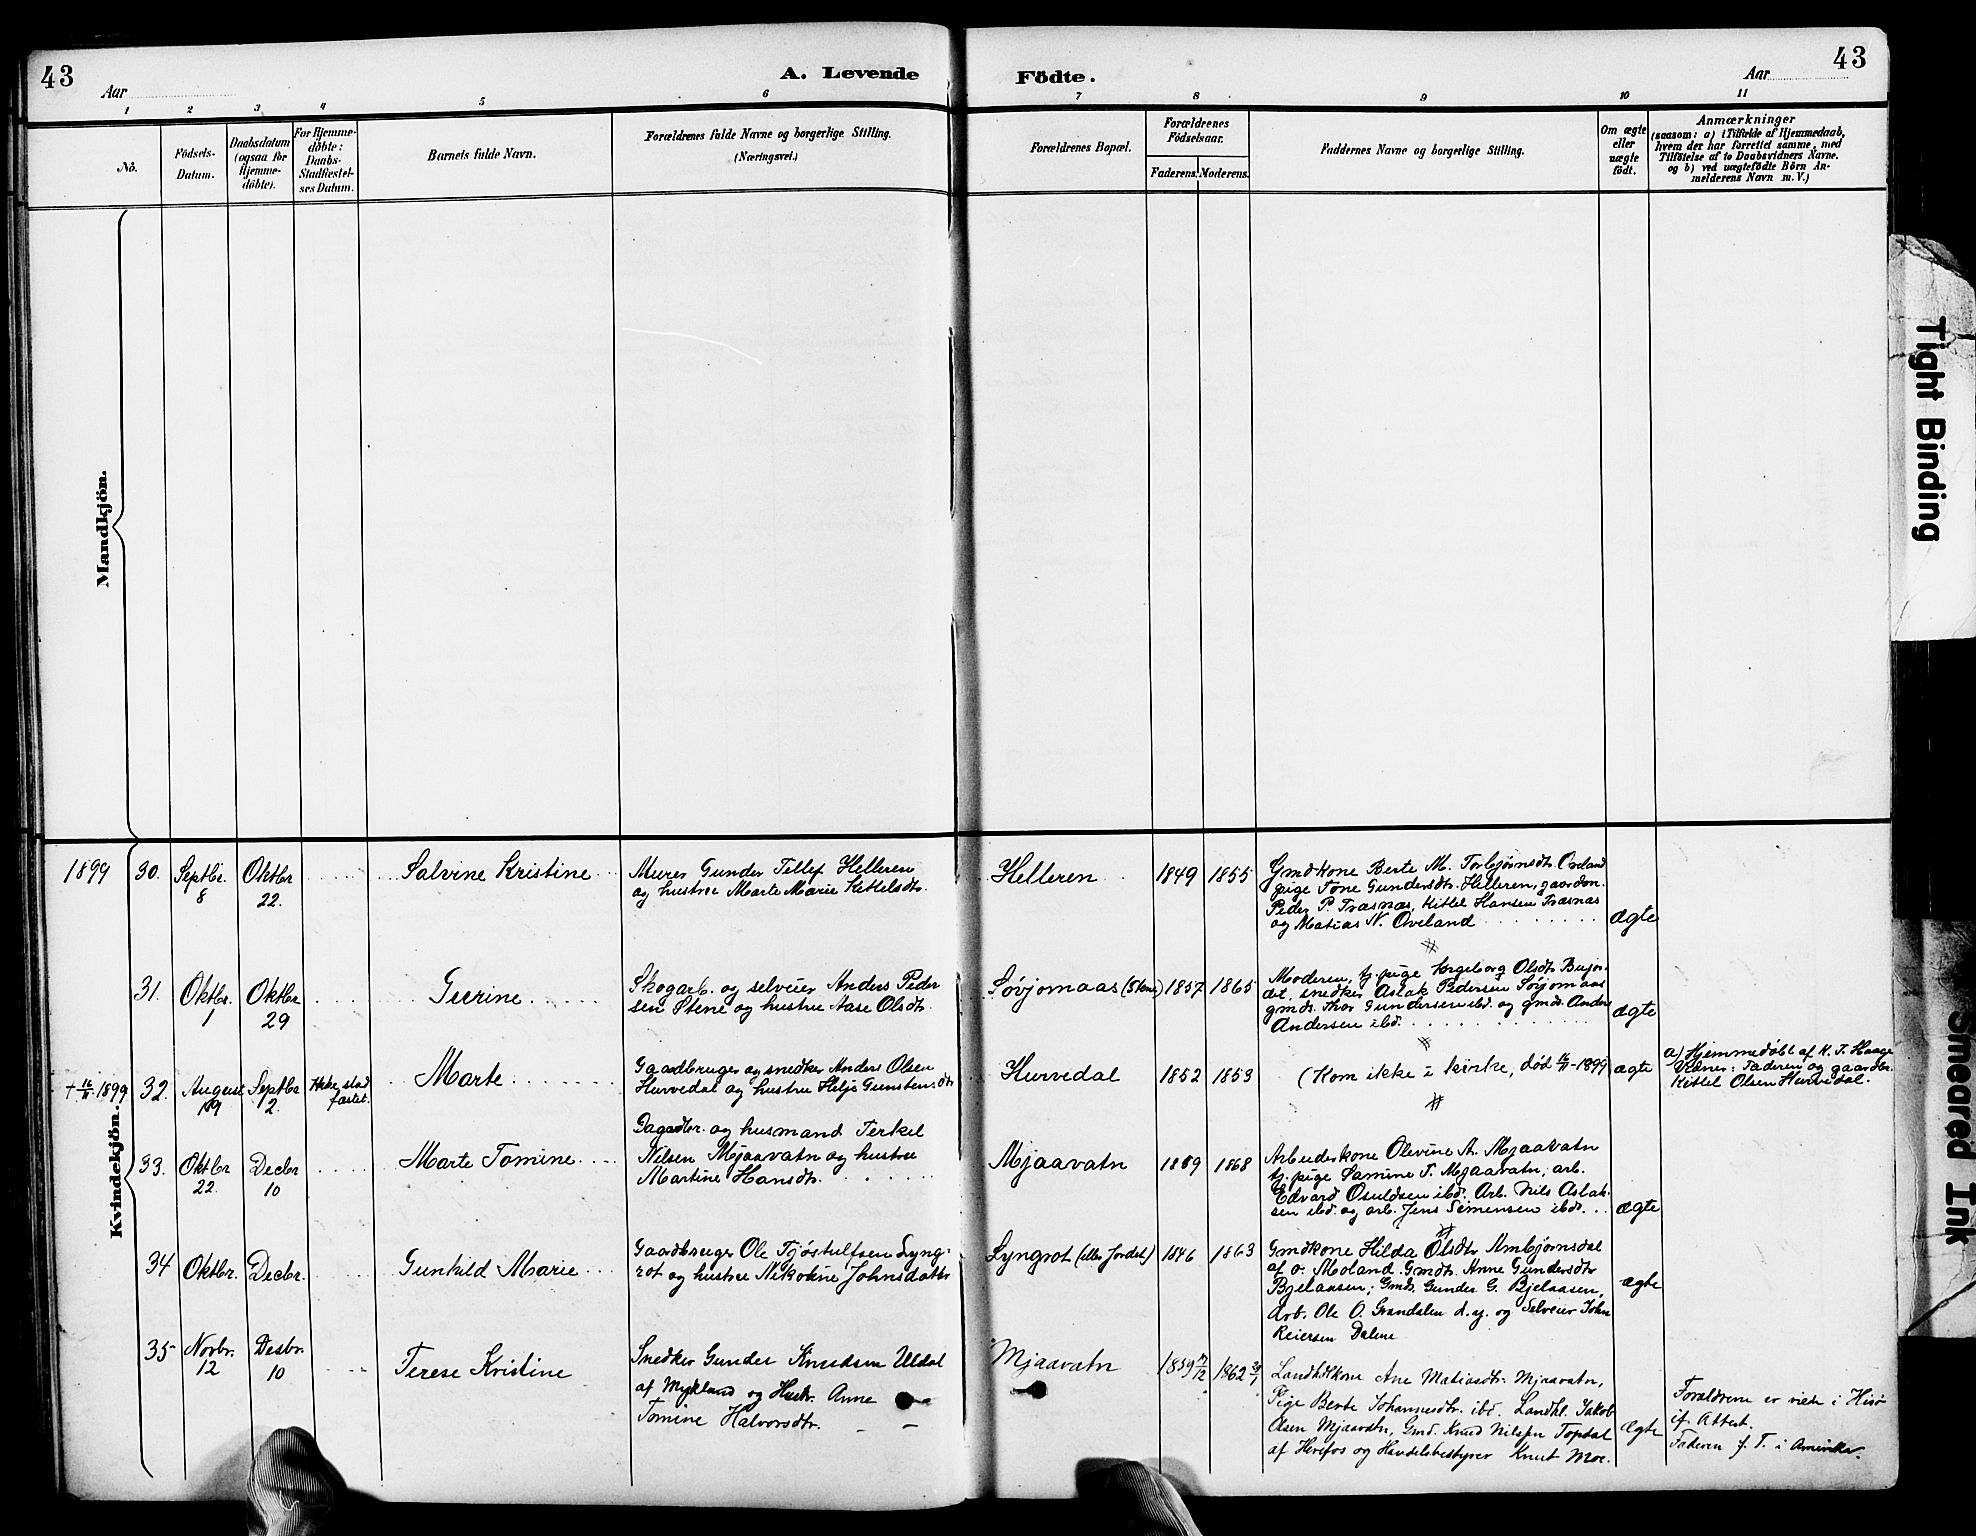 43
Aar
A. Levende
Födte.
Aar
43
1 2 3 4 5 6 7 8 9 10 11
No.
Födsels-
Datum.
Daabsdatum
(ogsaa for
Hjemme-
döbte).
For Hjemme-
döbte:
Daabs-
Stadfæstel-
ses Datum.
Barnets fulde Navn.
Forældrenes fulde Navne og borgerlige Stilling.
(Næringsvei.)
Forældrenes Bopæl.
Forældrenes
Födselsaar.
Faderens. Moderens.
Faddernes Navne og borgerlige Stilling.
Om ægte
eller
uægte
födt.
Anmærkninger
(saasom: a) i Tilfælde af Hjemmedaab,
hvem der har forrettet samme, med
Tilföielse af to Daabsvidners Navne.
og b) ved uægtefödte Börn An-
melderens Navn m. V.)
Mandkjön.
Kvindekjön.
1899
30.
Septbr.
8
Oktbr
22.
Salvine Kristine
Murer Gunder Tellef Helleren
og hustru Marte Marie Kittelsdtr.
Helleren
1849
1855
Gmdkone Berte M. Torbjørnsdtr
pige Tone Gundersdtr. Helleren, gaardm.
Peder P. Træsnæs, Kittel Hansen Træsnæs
og Matias N. Oveland
ægte
31.
Oktbr.
1
Oktbr
29
Gurine
Skogarb. og selveier Anders Peder
sen Stene og hustru Aase Olsdtr.
Søvjomaas (Stene)
1857
1865
Moderen, tj. pige Ingeborg Olsdtr
det, snedker Aslak Pedersen Søvjomaas
gmds. Thor Gundersen ibd. og gmds. Anders
Andersen ibd.
ægte
+ 16/11 1899
32.
August
19
Septbr
2.
Ikke stad
fæstet.
Marte
Gaardbruger og snedker Anders Olsen
Hurvedal og hustru Helje Gunstensdtr
Hurvedal
1852
1853
(Kom ikke i kirke, død 16/11-1899
ægte
a) Hjemmedøbt af K. T. Haage
Vidner: Faderen og gaardbr.
Kittel Olsen Hurvedal.
33.
Oktbr
22.
Decbr
10
Marte Tomine
Dagarbr. og husmand Terkel
Nilsen Mjaavatn og hustru
Martine Hansdtr.
Mjaavatn
1868
Arbeiderkone Olevine A. Mjaavatn
tj. pige Samine T. Mjaavatn, arb.
Edvard Osuldsen ibd. Arb. Nils Aslak-
sen ibd. og arb. Jens Simensen ibdr.
ægte
34
Oktbr.
Decbr.
Gunhild Marie
Gaardbruger Ole Tjøstulfsen Lyng-
rot og hustru Nikoline Johnsdattr
Lyngrot (eller Jordet)
1846
1863
Gmdkone Hilda Olsdtr Ambjørnsdal
af ø. Moland. Gmdtr. Anne Gundersdtr
Bjelaasen; Gmds. Gunder G. Bjelaasen,
Arb. Ole O. Grandalen d. y. og Selveier John
Reiersen Dalene
ægte
35
Novbr.
12
Desbr.
10
Terese Kristine
Snedker Gunder Knudsen Uldal
af Mykland og Hustr. Anne
Tomine Halvorsdtr.
Mjaavatn
1859
1862
Landhdlkone Ane Matiasdtr. Mjaavatn,
Pige Berte Johannesdtr. ibd. Landhl. Jakob
Olsen Mjaavatn, Gmd. Knud Nilsen Topdal
af Herefos og Handelsbestyrer Knut Moe.
ægte
Forældrene er viede i Hisø
if. Attest.
Faderen f. T. i Amerika.
Tight Binding
Smeared Ink